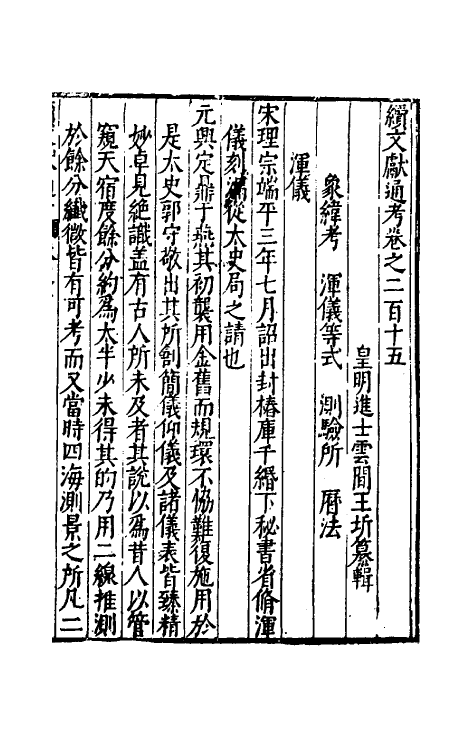 續文獻通考卷之二百十五
皇明進士雲間王圻纂輯
象緯考　渾儀等式　測驗所　曆法
渾儀
宋理宗端平三年七月詔出封樁庫千緡下秘書省脩渾
儀刻漏從太史局之請也
元興定鼎于燕其初襲用金舊而規環不恊難復施用於
是太史郭守敬出其所創簡儀仰儀及諸儀表皆臻精
妙卓見絕識盖有古人所未及者其說以爲昔人以管
窺天宿度餘分約爲太半少未得其的乃用二線推測
於餘分纖微皆有可考而又當時四海測景之所凡二